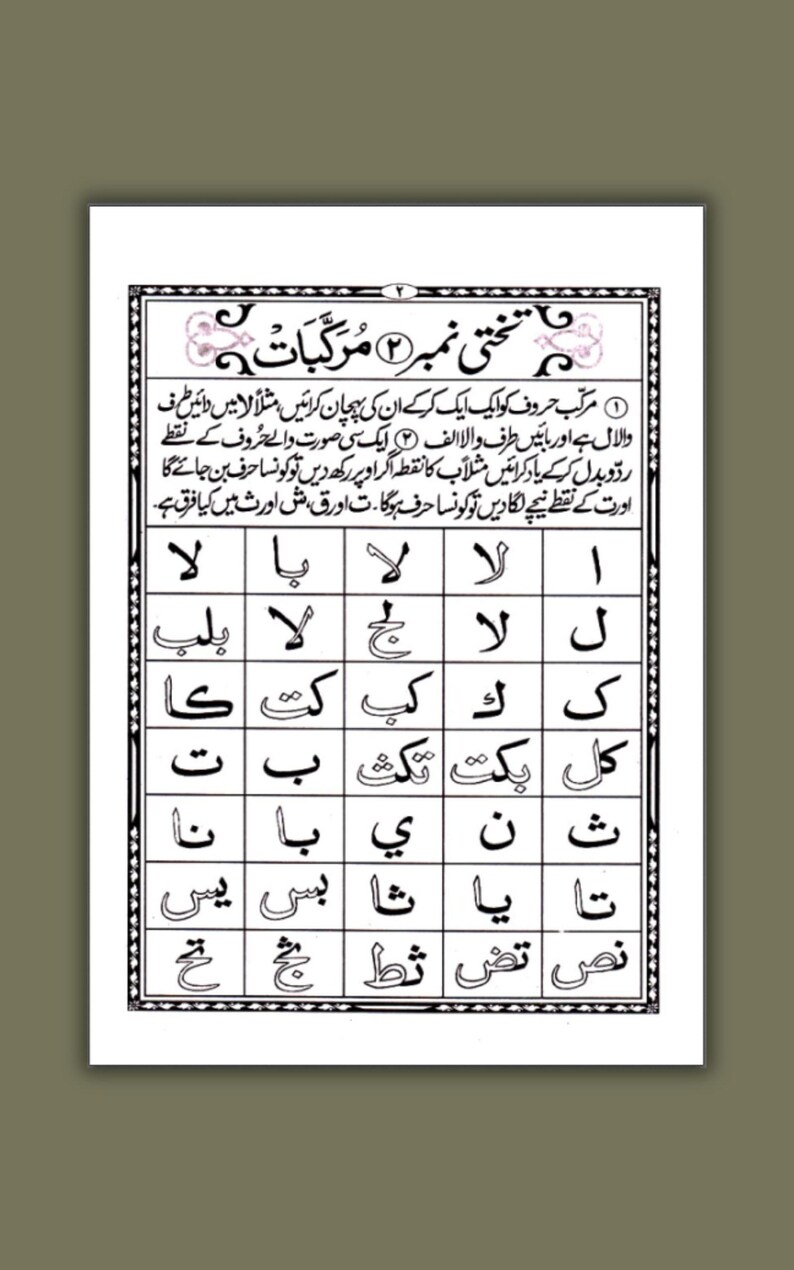 ۲
تختی نمبر ۲ مُرَکَّبَاتْ
۱ مرکّب حروف کو ایک ایک کرکے ان کی پہچان کرائیں، مثلاً لا میں دائیں طرف
والا ل ہے اور بائیں طرف والا الف ۲ ایک سی صورت والے حُروف کے نقطے
ردّوبدل کرکے یاد کرائیں مثلاً ب کا نقطہ اگر اوپر رکھ دیں تو کونسا حرف بن جائے گا
اور ت کے نقطے نیچے لگا دیں تو کونسا حرف ہوگا۔ ت اور ق، ش اور ث میں کیا فرق ہے۔
ا لا لا با لا
ل لا لج لا بلب
ک ك کب کت کا
کل بکت تکث ب ت
ث ن ي با نا
تا یا ثا بس یس
نص تض ثط بج تح